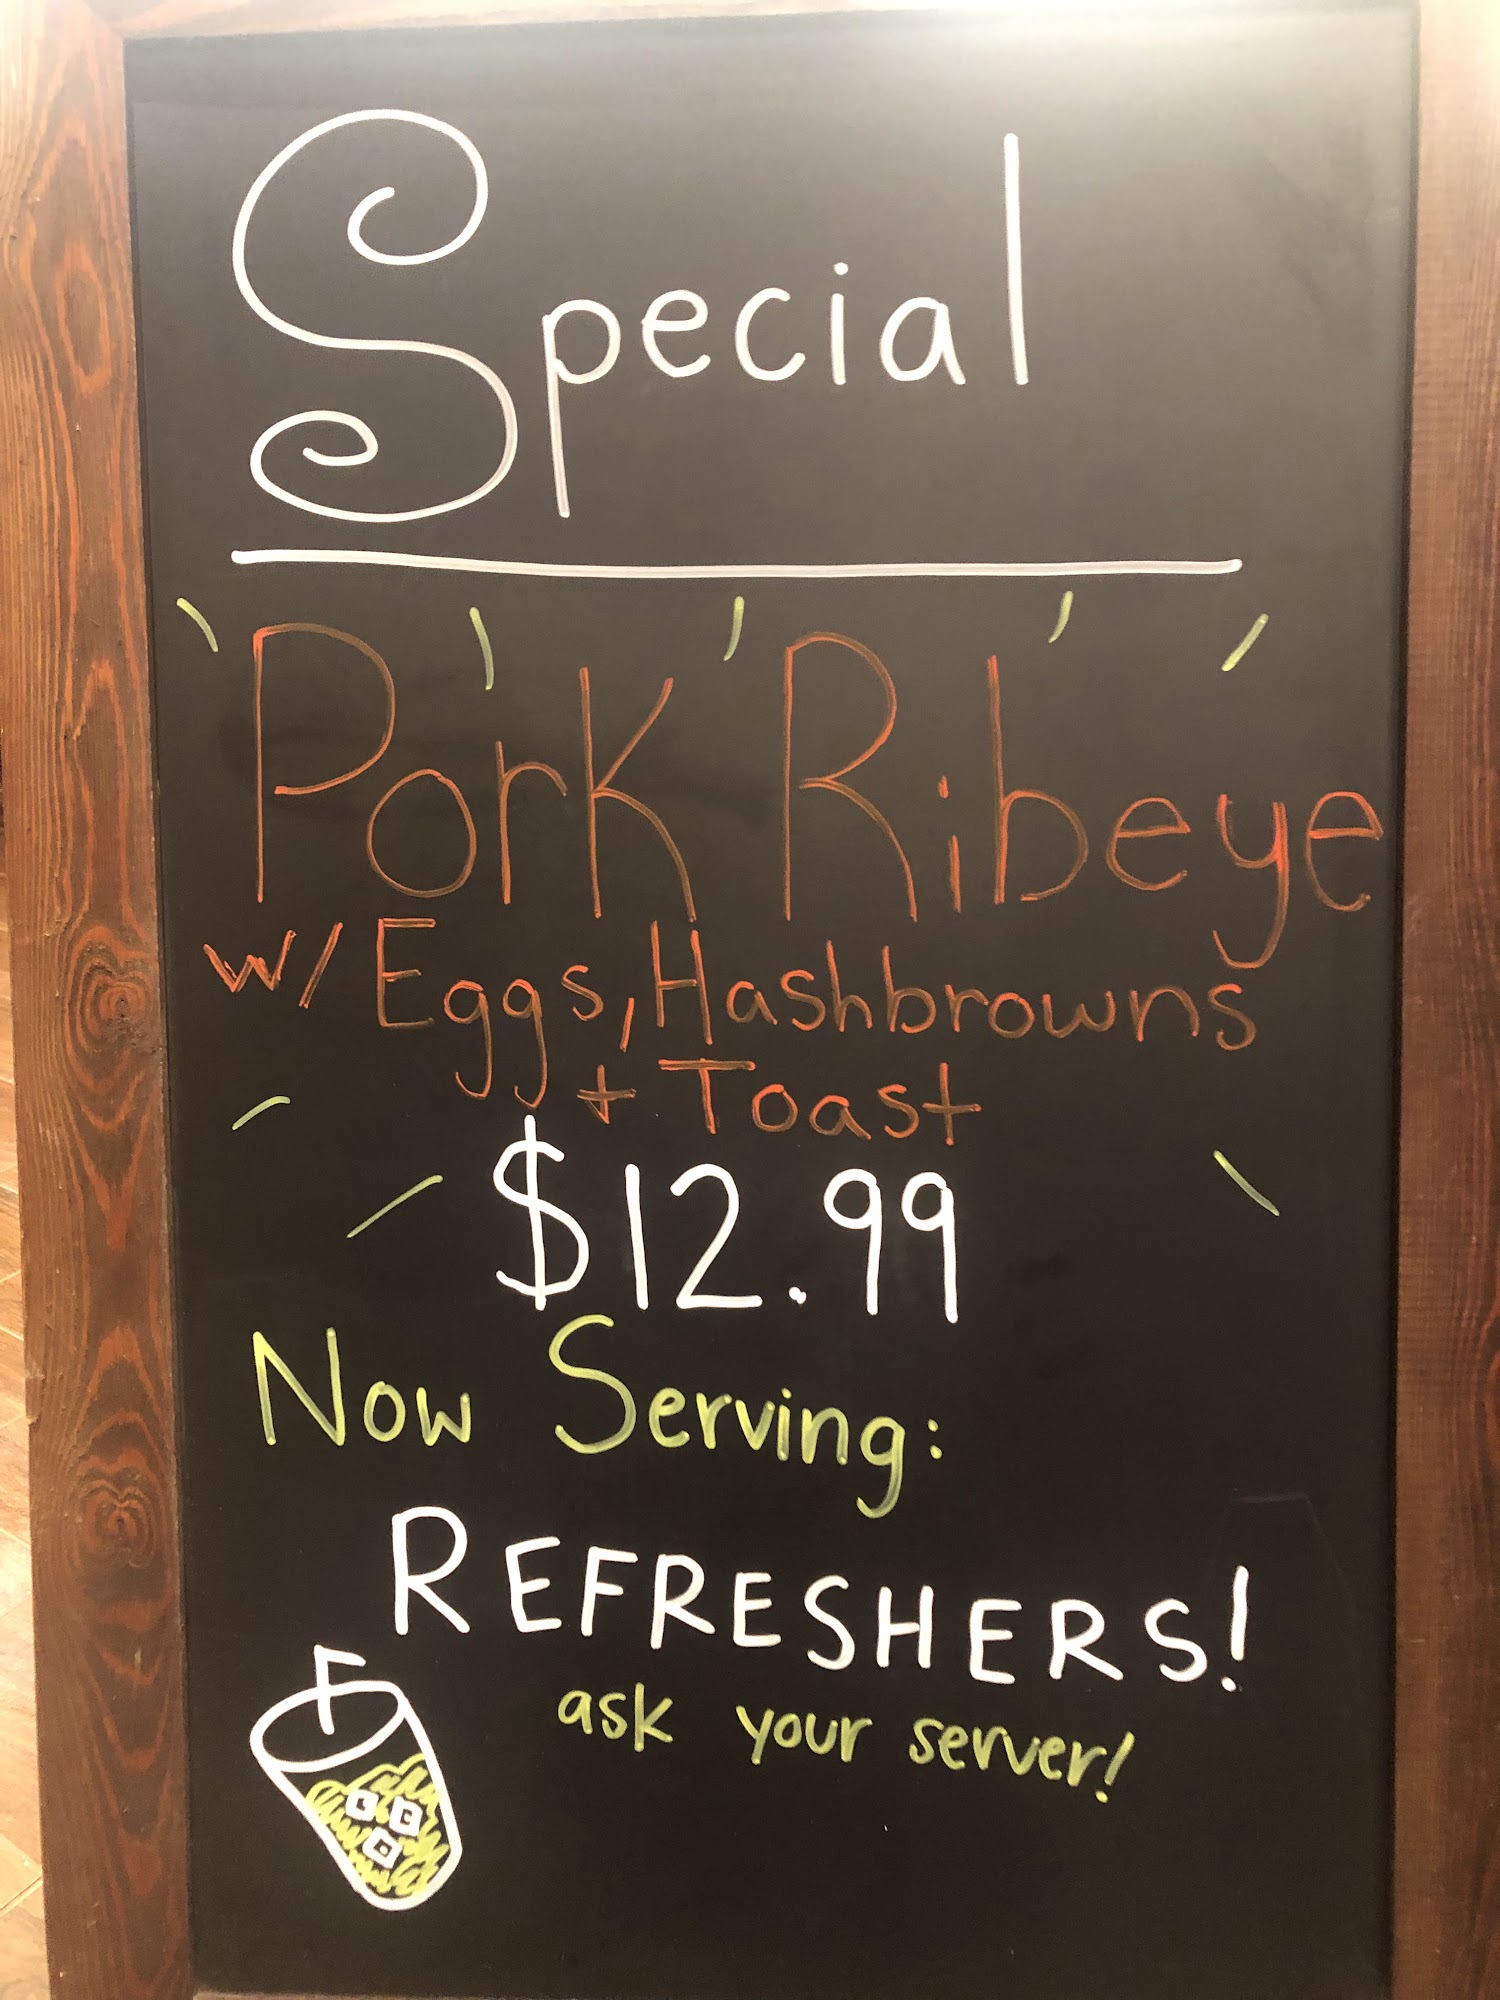 Special
Pork Ribeye
w/ Eggs, Hashbrowns
+ Toast
$12.99
Now Serving:
REFRESHERS!
ask your server!